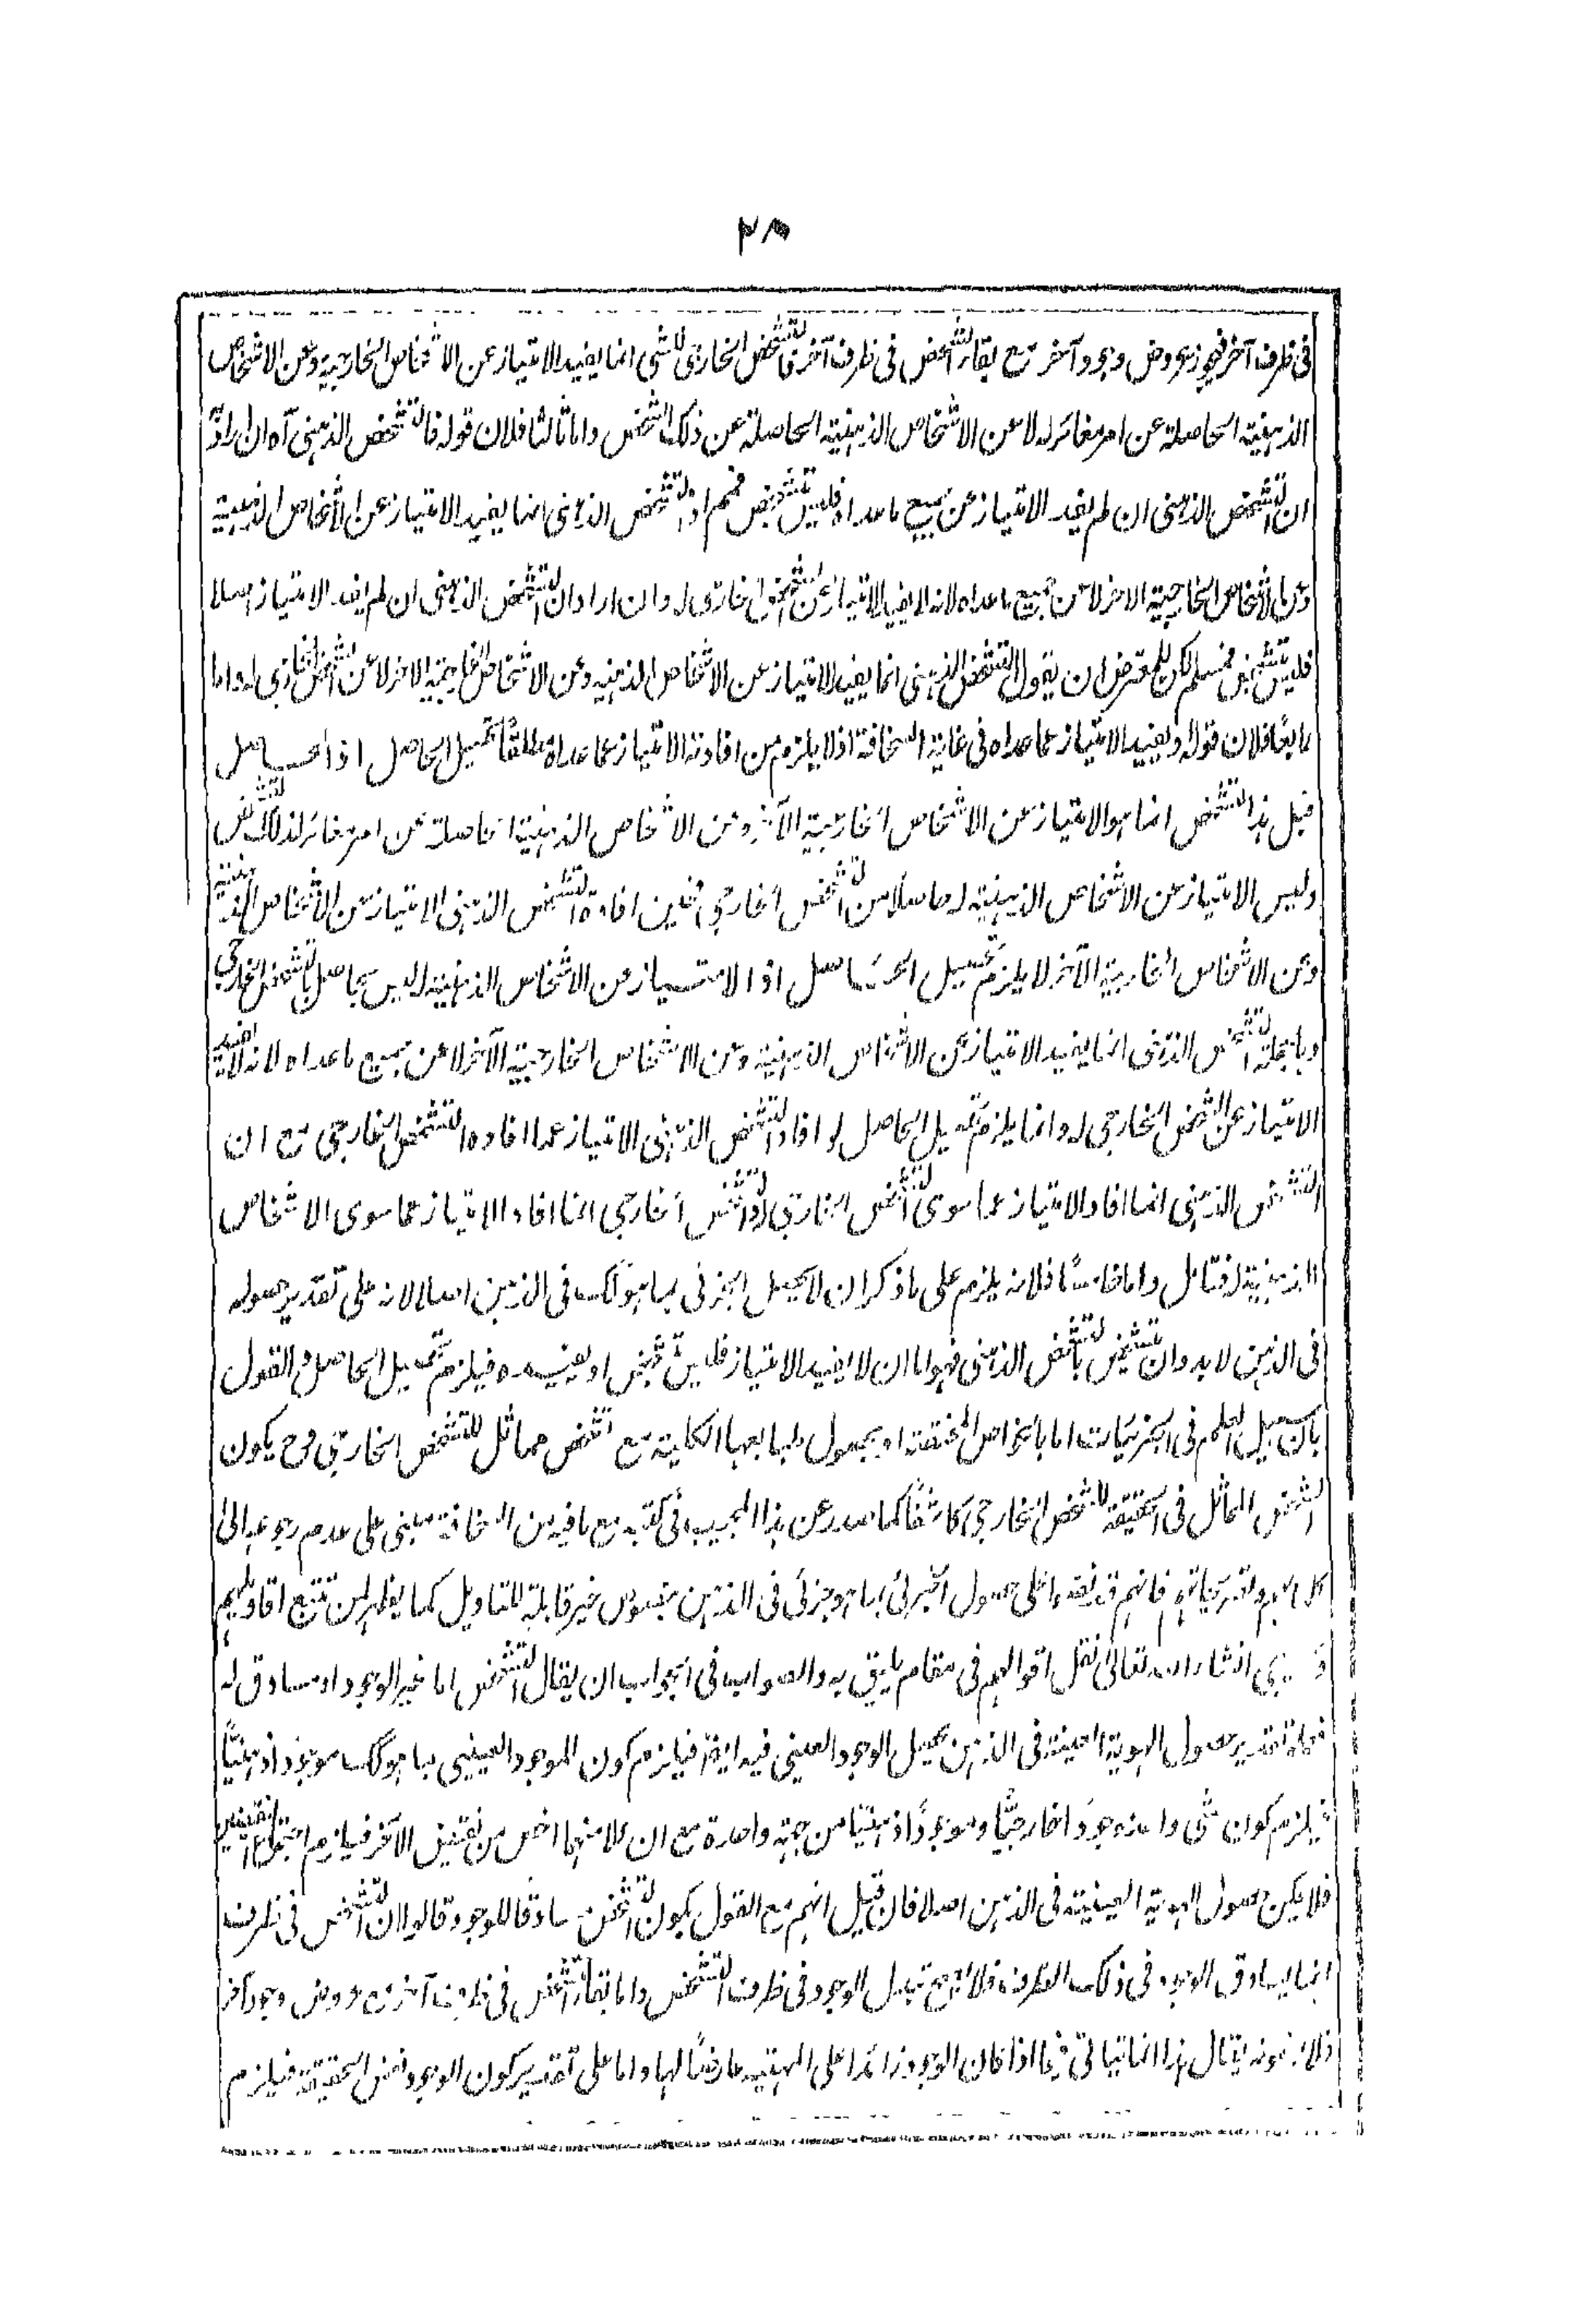 ٢٨
فى ظرف آخر فيجوز عروض وجود آخر مع بقاء التشخص فى ظرف آخر فالتشخص الخارجى للشى انما يفيد الامتياز عن الاشخاص الخارجية وعن الاشخاص
الذهنية الحاصلة عن امر مغائر له لا عن الاشخاص الذهنية الحاصلة عن ذلك الشخص واما ثالثا فلان قوله فالتشخص الذهنى آه ان اراد به
ان التشخص الذهنى ان لم يفد الامتياز عن جميع ما عداه فليس بتشخص فمم اذ التشخص الذهنى انما يفيد الامتياز عن الاشخاص الذهنية
وعن الاشخاص الخارجية الاخر لا عن جميع ما عداه لانه لا يفيد الامتياز عن الشخص الخارجى له وان اراد ان التشخص الذهنى ان لم يفد الامتياز اصلا
فليس بتشخص فمسلم لكن للمعترض ان يقول التشخص الذهنى انما يفيد الامتياز عن الاشخاص الذهنية وعن الاشخاص الخارجية الاخر لا عن الشخص الخارجى له واما
رابعا فلان قوله او يفيد الامتياز عما عداه فى غاية السخافة اذ لا يلزم من افادته الامتياز عما عداه مطلقا تحصيل الحاصل اذ الحاصل
قبل هذا التشخص انما هو الامتياز عن الاشخاص الخارجية الآخر وعن الاشخاص الذهنية الحاصلة عن امر مغائر لذلك الشخص
وليس الامتياز عن الاشخاص الذهنية له حاصلا من التشخص الخارجى فمن افادة التشخص الذهنى الامتياز عن الاشخاص الذهنية
وعن الاشخاص الخارجية الآخر لا يلزم تحصيل الحاصل اذ الامتياز عن الاشخاص الذهنية له ليس بحاصل بالتشخص الخارجى
وبالجملة التشخص الذهنى انما يفيد الامتياز عن الاشخاص الذهنية وعن الاشخاص الخارجية الآخر لا عن جميع ما عداه لانه لا يفيد
الامتياز عن الشخص الخارجى له وانما يلزم تحصيل الحاصل لو افاد التشخص الذهنى الامتياز عما افاده التشخص الخارجى مع ان
التشخص الذهنى انما افاد الامتياز عما سوى الشخص الخارجى له والتشخص الخارجى انما افاد الامتياز عما سوى الاشخاص
الذهنية له فتامل واما خامسا فلانه يلزم على ما ذكر ان لا يحصل الجزئى بما هو كك فى الذهن اصلا لانه على تقدير حصوله
فى الذهن لا بد وان يتشخص بالتشخص الذهنى فهو اما ان لا يفيد الامتياز فليس بتشخص او يفيده فيلزم تحصيل الحاصل والقول
بان سبيل العلم فى الجزئيات اما بالخواص المختصة او بحصول طبائعها الكلية مع تشخص مماثل للتشخص الخارجى وح يكون
الشخص المماثل فى الحقيقة للشخص الخارجى كاشفا كما صدر عن هذا المجيب فى كتبه مع ما فيه من السخافة مبنى على عدم رجوعه الى
كلامهم وتصريحاتهم فانهم قد نصوا على حصول الجزئى بما هو جزئى فى الذهن بنصوص غير قابلة للتاويل كما يظهر لمن تتبع اقاويلهم
ان شاء الله تعالى نقل اقوالهم فى مقام يليق به والصواب فى الجواب ان يقال التشخص اما عين الوجود او مساوق له
فعلى تقدير حصول الهوية العينية فى الذهن يحصل الوجود العينى فيه ايضا فيلزم كون الموجود العينى بما هو كك موجودا ذهنيا
فيلزم كون شى واحد موجودا خارجيا وموجودا ذهنيا من جهة واحدة مع ان كلا منهما اخص من نقيض الآخر فيلزم اجتماع النقيضين
فلا يمكن حصول الهوية العينية فى الذهن اصلا فان قيل انهم مع القول بكون التشخص مساوقا للوجود قالوا ان التشخص فى ظرف
انما يساوق الوجود فى ذلك الظرف فلا يصح تبديل الوجود فى ظرف التشخص واما بقاء التشخص فى ظرف آخر مع عروض وجود آخر
يقال هذا انما يتاتى فيما اذا كان الوجود زائدا على المهية عارضا لها واما على تقدير كون الوجود نفس الحقيقة فيلزم